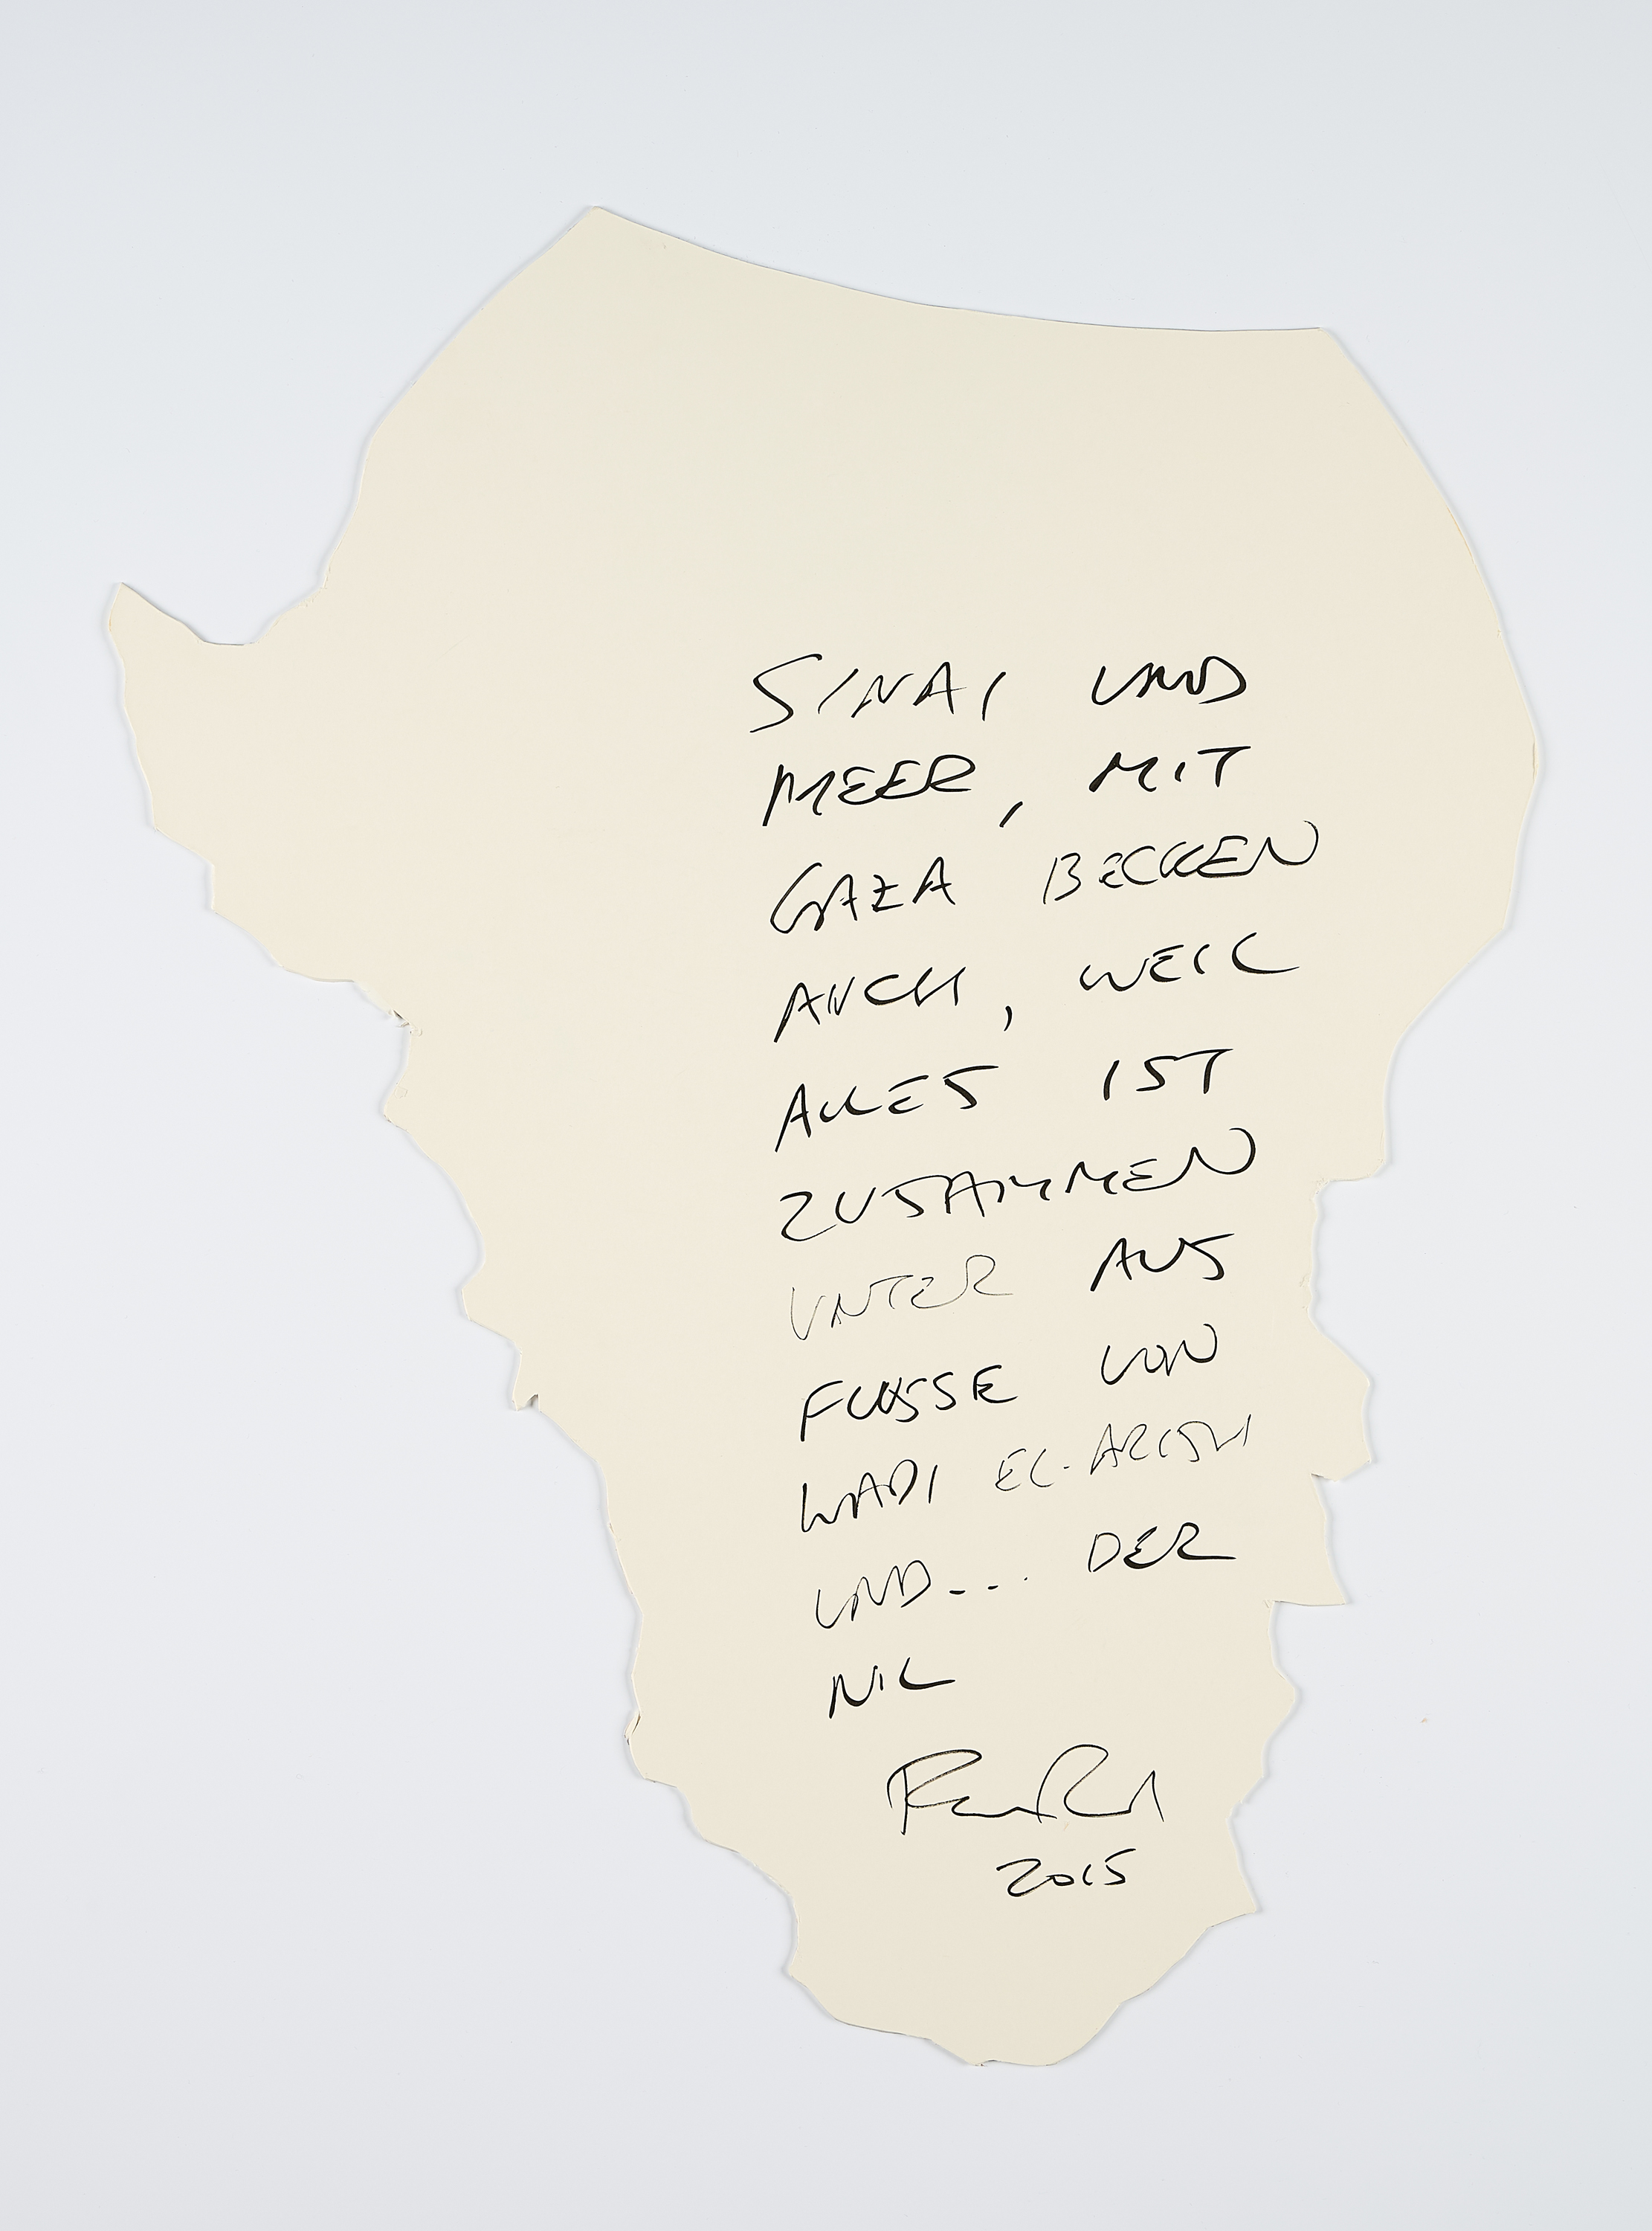 SINAI UND
MEER, MIT
GAZA BECKEN
AUCH, WEIL
ALLES IST
ZUSAMMEN
UNTER AUS
FLUSSE VON
WADI EL-ARISH
UND... DER
NIL
2015